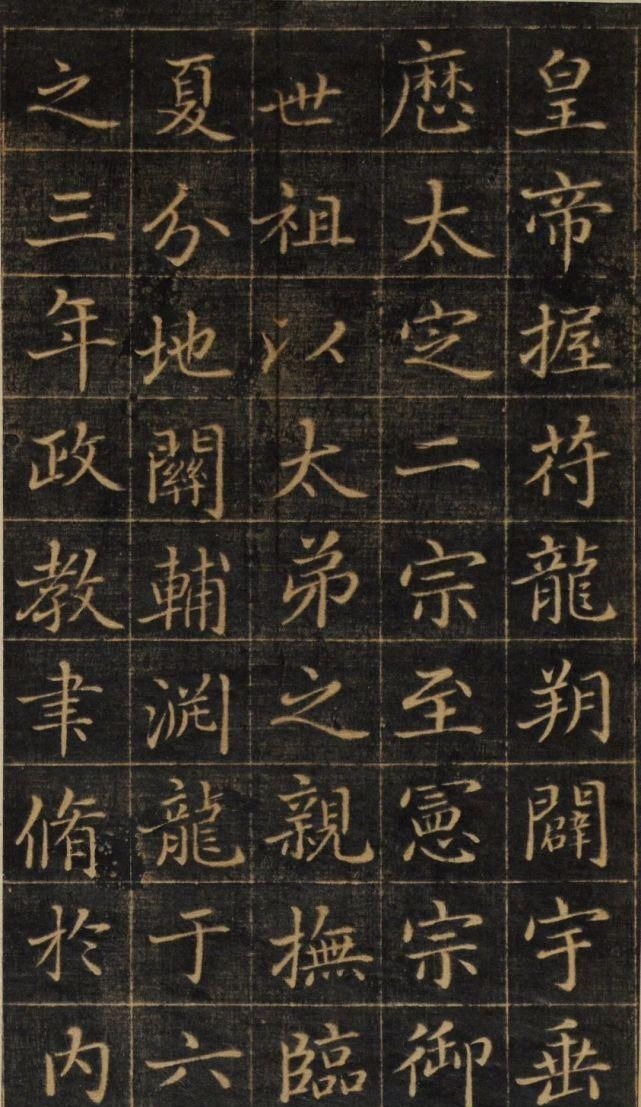 皇帝握符龍朔闢宇垂
歷太定二宗至憲宗御
世祖以太弟之親撫臨
夏分地關輔渊龍于六
之三年政教聿脩於内